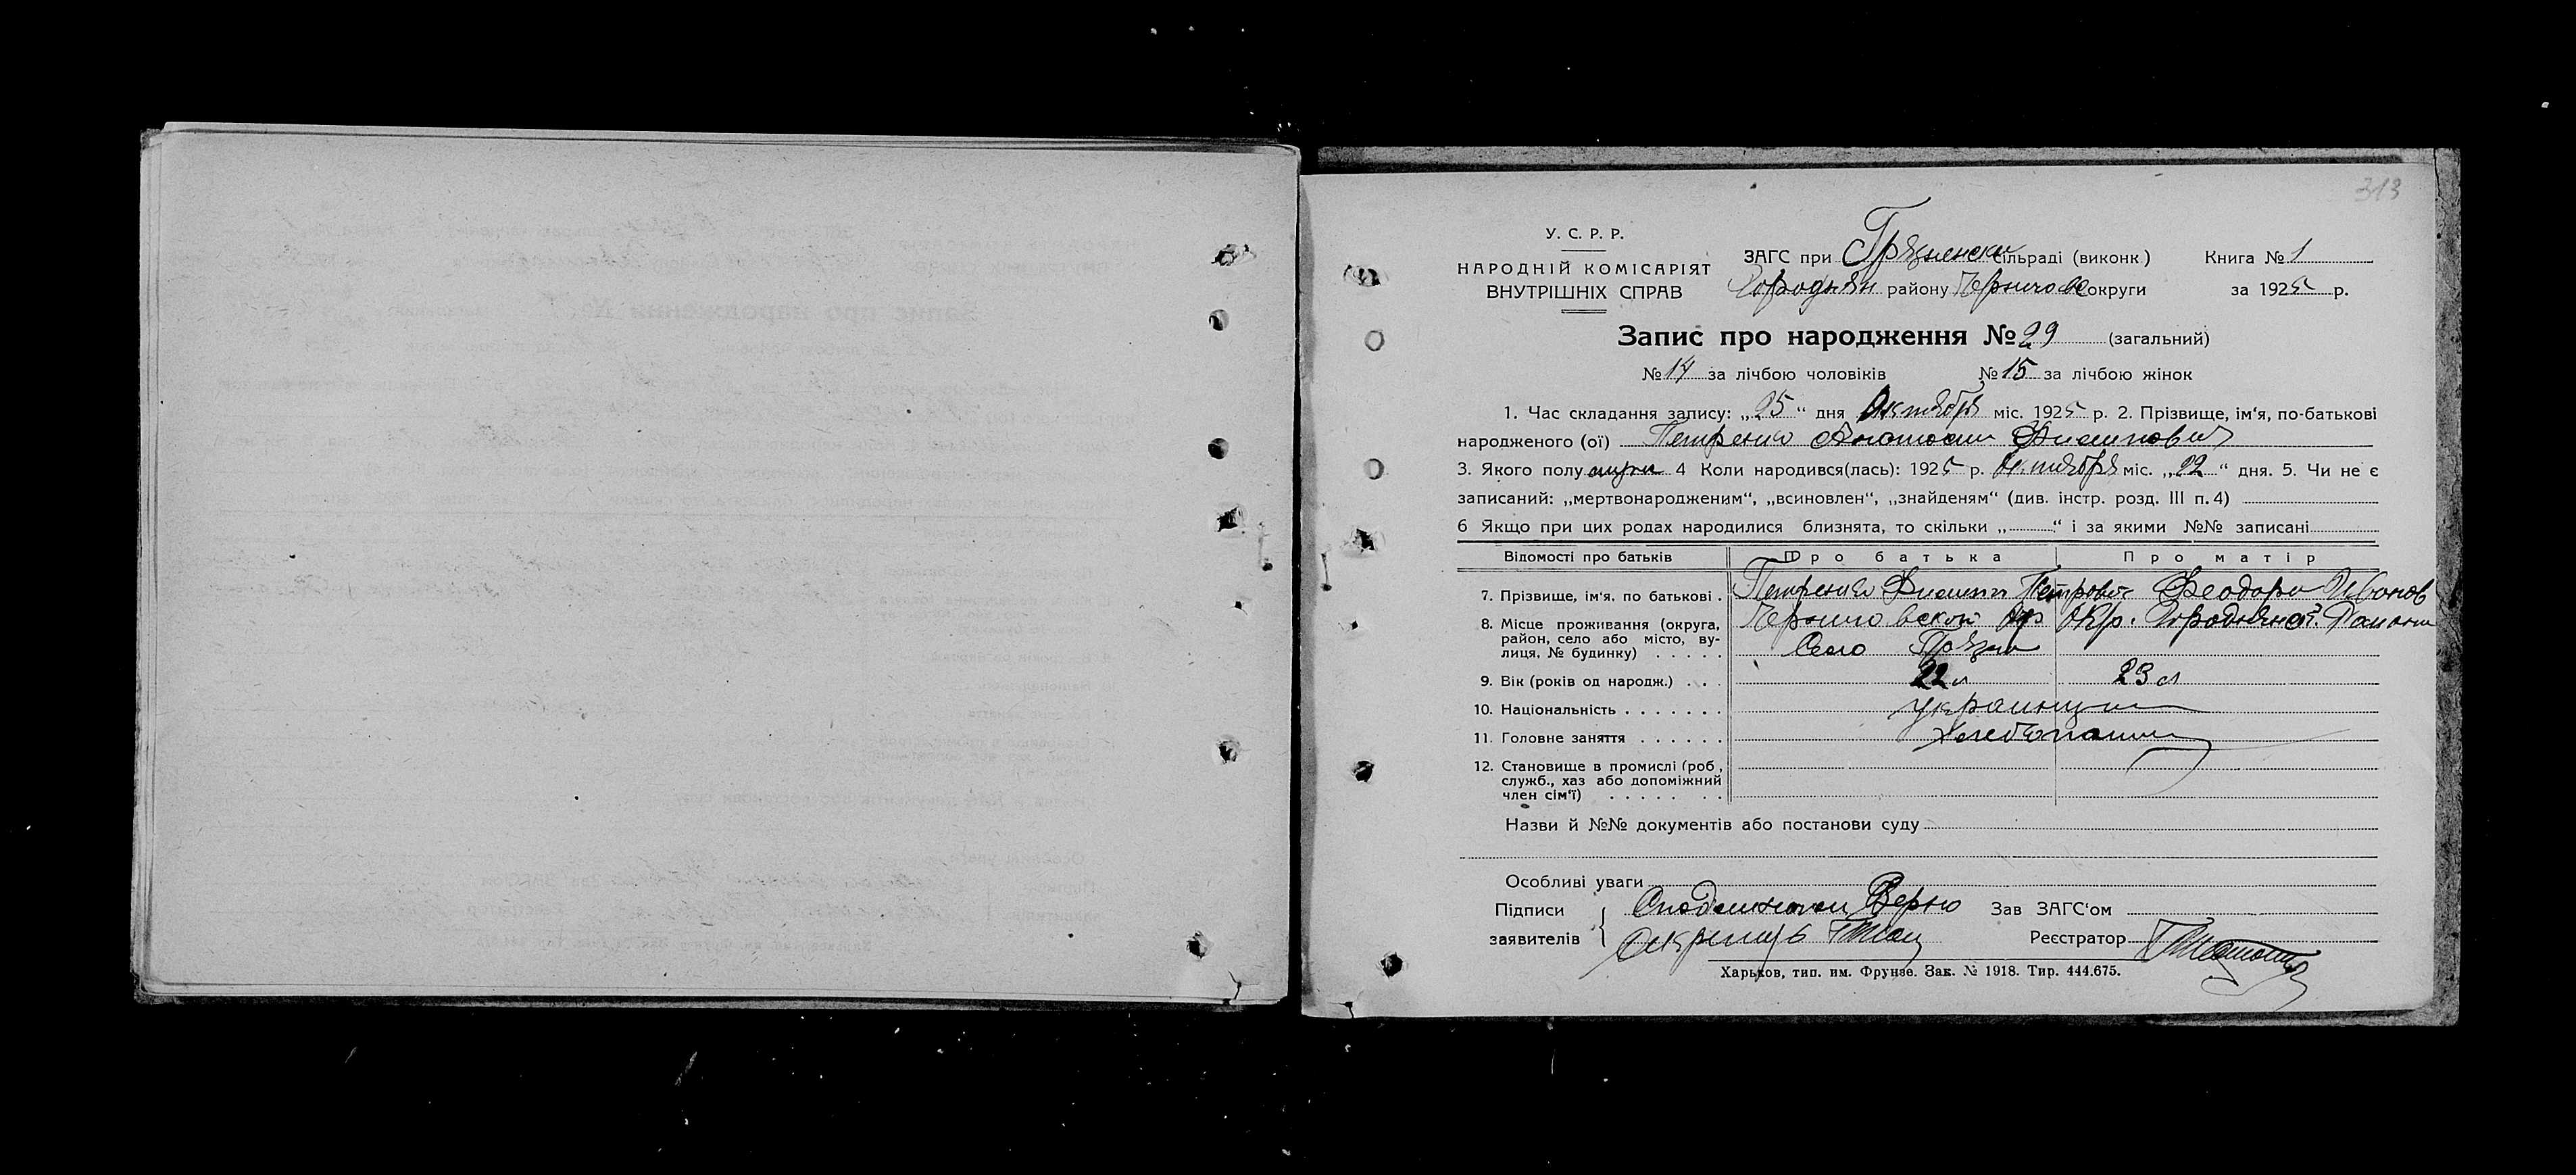 313
У. С. Р. Р.
НАРОДНІЙ КОМІСАРІЯТ
ВНУТРІШНІХ СПРАВ
ЗАГС при сільраді (виконк.) Книга № 1
Городнян району Чернигов округи за 1925 р.
Запис про народження № 29 (загальний)
№ 14 за лічбою чоловіків № 15 за лічбою жінок
1. Час складання запису: „25“ дня Октября міс. 1925 р. 2. Прізвище, ім'я, по-батькові
народженого (ої) Петренко Филипович
3. Якого полу 4 Коли народився(лась): 1925 р. Октября міс. „22“ дня. 5. Чи не є
записаний: „мертвонародженим“, „всиновлен“, „знайденям“ (див. інстр. розд. III п. 4)
6 Якщо при цих родах народилися близнята, то скільки „ “ і за якими №№ записані
Відомості про батьків Про батька Про матір
7. Прізвище, ім'я, по батькові . Петренко Филипп Петрович Феодора Иванов
8. Місце проживання (округа, район, село або місто, вулиця, № будинку) . . . . . Черниговской Окр. Городнянс.
Село
9. Вік (років од народж.) . . . 22 л 23 л
10. Національність . . . . . . . украинцы
11. Головне заняття . . . . . . Хлебопашцы
12. Становище в промислі (роб, служб., хаз або допоміжний член сім'ї) . . . . . . .
Назви й №№ документів або постанови суду
Особливі уваги
Підписи Зав ЗАГС'ом
заявителів Реєстратор
Харьков, тип. им. Фрунзе. Зак. № 1918. Тир. 444.675.